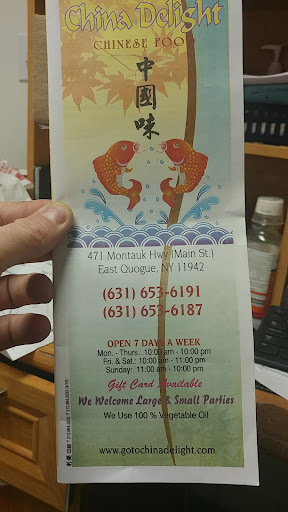 China Delight
CHINESE FOO
中
國
味
471 Montauk Hwy (Main St.)
East Quogue, NY 11942
(631) 653-6191
(631) 653-6187
OPEN 7 DAYS A WEEK
Mon. - Thurs.: 10:00 am - 10:00 pm
Fri. & Sat.: 10:00 am - 11:00 pm
Sunday: 11:00 am - 10:00 pm
Gift Card Available
We Welcome Large & Small Parties
We Use 100 % Vegetable Oil
www.gotochinadelight.com